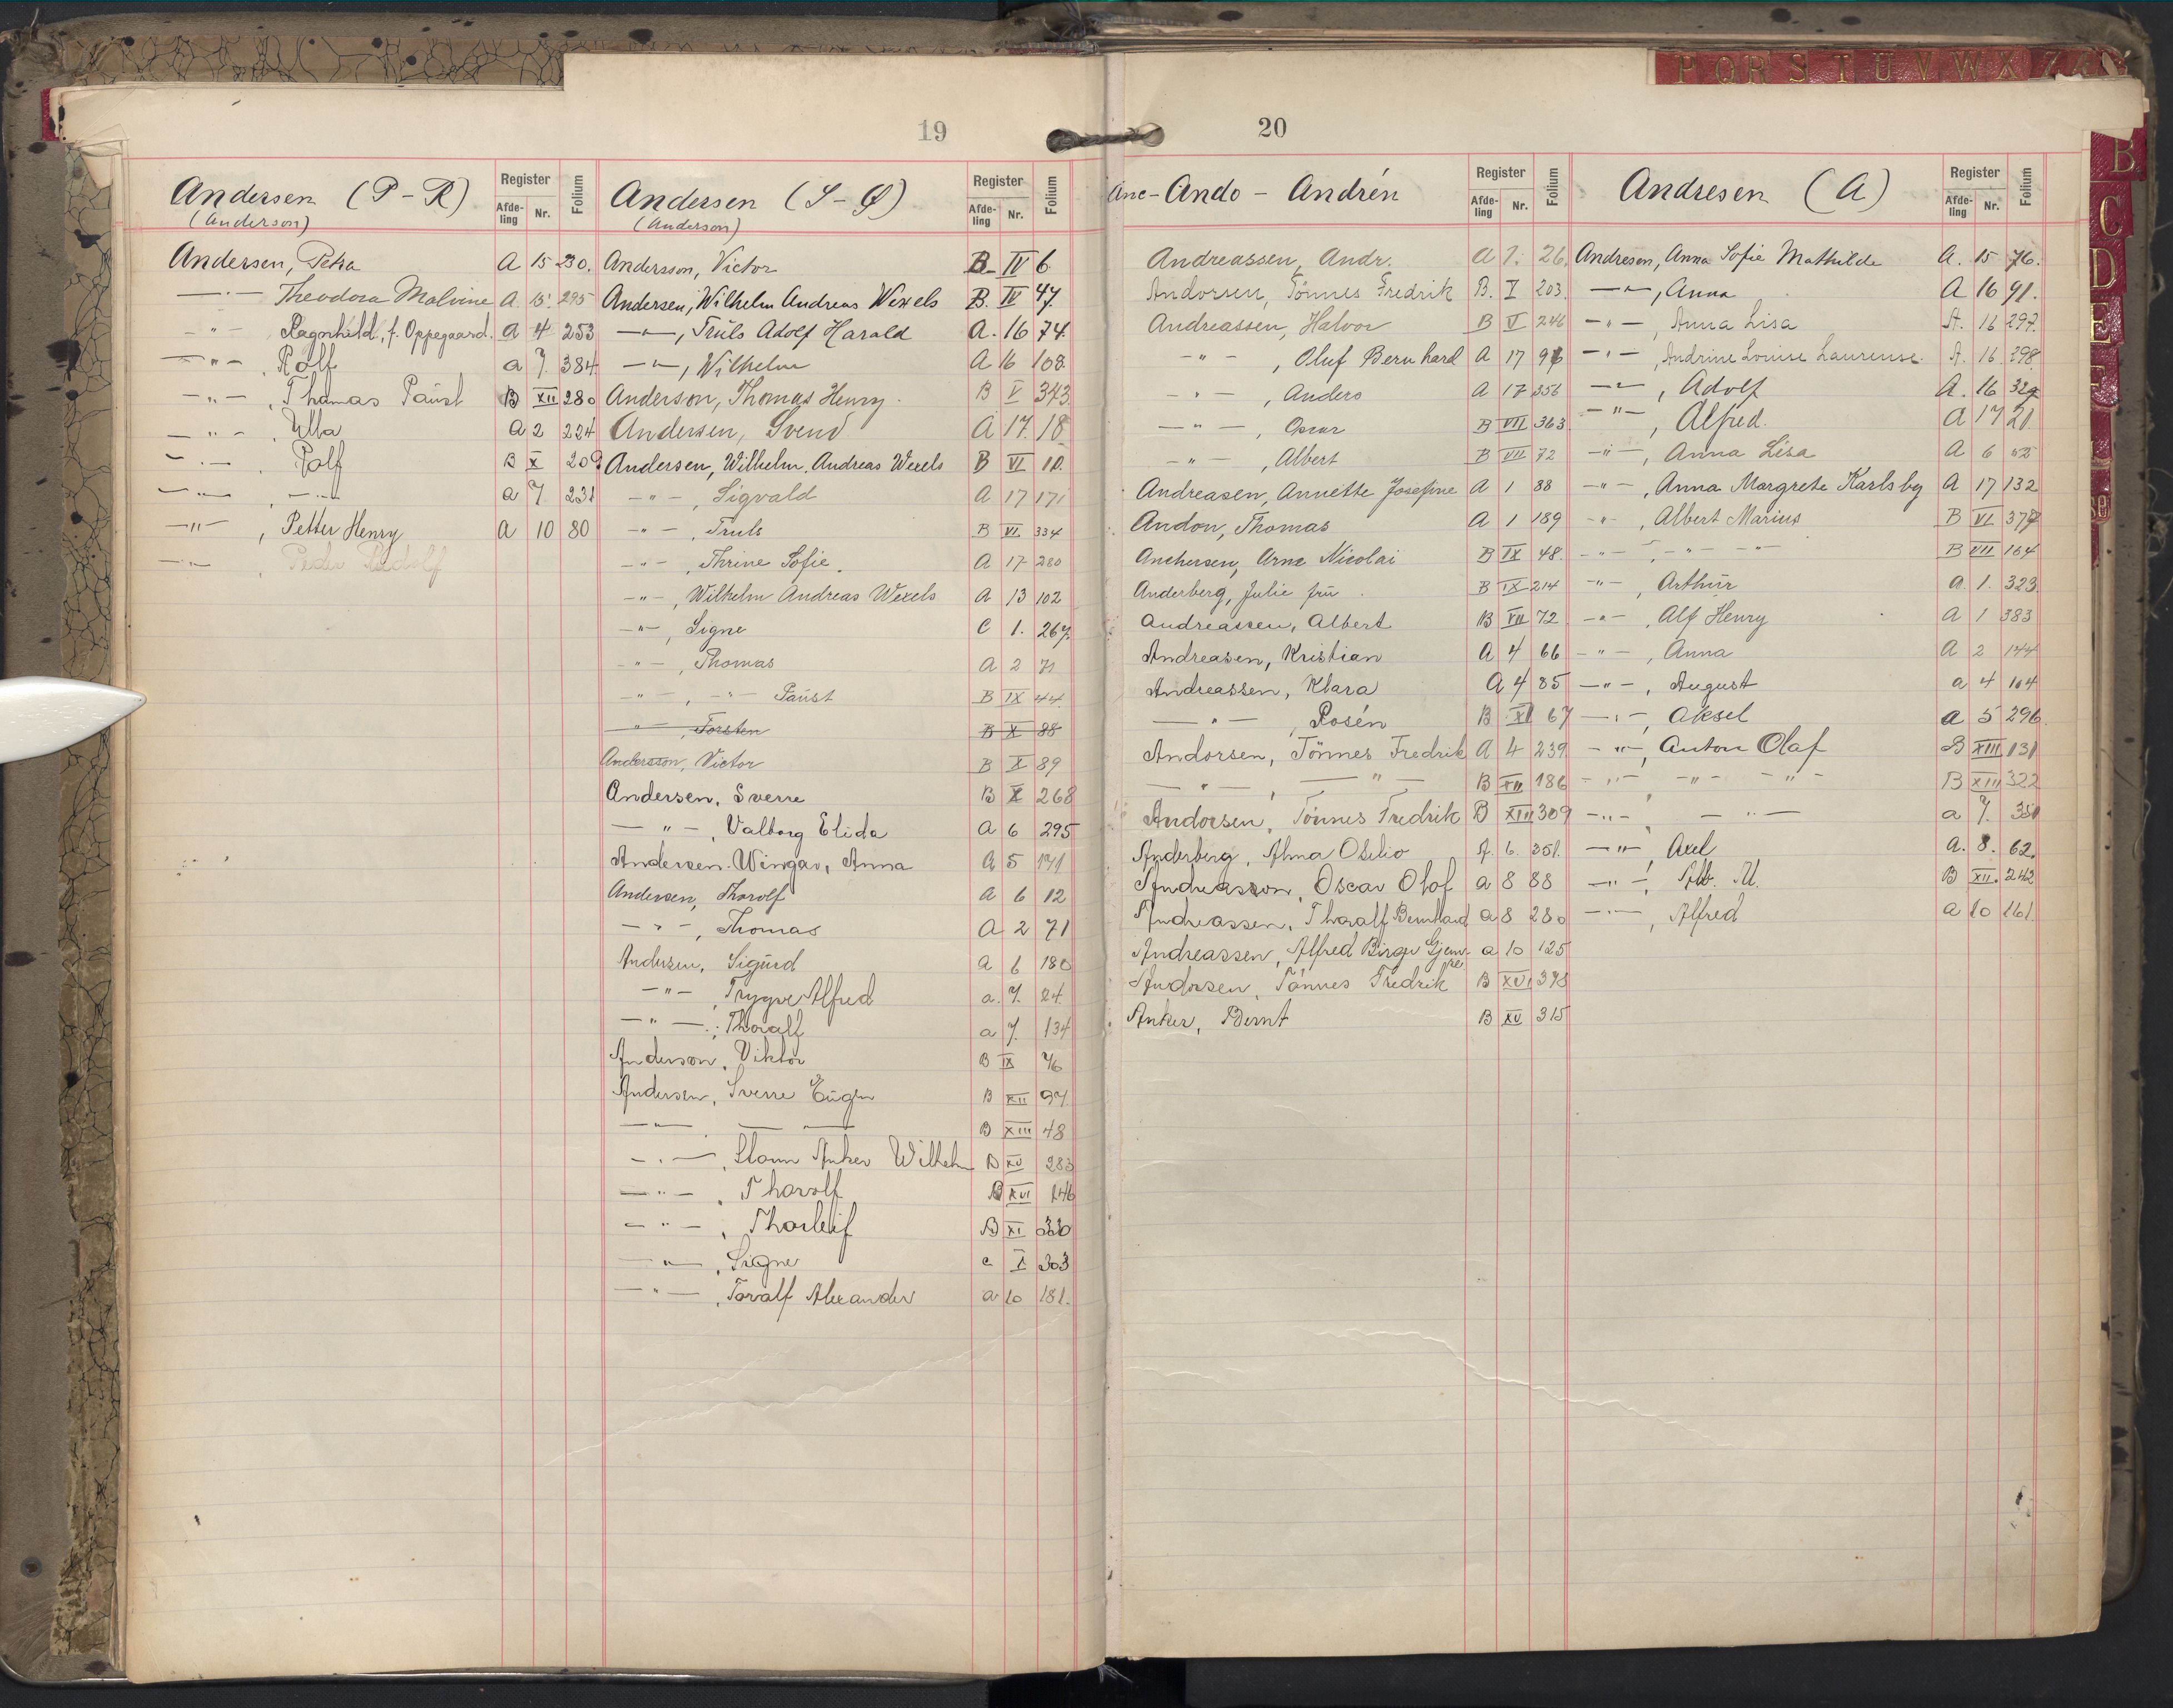 P Q R S T U V W X Z Æ
19
Andersen (P-R)
(Anderson)
Register
Afde-ling Nr. Folium
Andersen, Petra A 15 230.
—·— Theodora Malvine A. 15. 295
-"- Ragnhild, f. Oppegaard. A 4 253
—"— , Rolf a 7. 384
—"— , Thomas Paust B XII 280
—"— , Ulla A 2 224
—·— , Rolf B X 209
—"— , —"— a 7. 231
—"— , Petter Henry A 10 80
—"— , Peder Rudolf
Andersen (S-Ø)
(Anderson)
Register
Afde-ling Nr. Folium
Andersson, Victor B- IV 6
Andersen, Wilhelm Andreas Wexels B. IV 47.
—"—, Truls Adolf Harald A. 16 74.
—"—, Wilhelm A 16 108
Anderson, Thomas Henry. B V 343
Andersen, Svend A 17. 18
Andersen, Wilhelm Andreas Wexels B VI 10.
-"-, Sigvald A 17 171
-"-, Truls B VI 334
-"-, Thrine Sofie. A 17 280
-"-, Wilhelm Andreas Wexels A 13 102
-"-, Signe C 1. 267.
-"-, Thomas A 2 71
-"-, -"- Paust B IX 44
-"-, Torsten B X 88
Andersson, Victor B X 89
Andersen, Sverre B X 268
—"—, Valborg Elida A 6 295
Andersen-Wingar, Anna A 5 141
Andersen, Thorolf a 6 12
-"-, Thomas A 2 71
Andersen, Sigurd a 6 180
-"- , Trygve Alfred a. 7. 24.
—"— , Thoralf a 7. 134
Anderson, Viktor B IX 76
Andersen, Sverre Eugen B XII 97
—"—, — — B XIII 48
—"—, Anker Wilhelm B XV 283
—"— , Thorolf B XVI 246
—"— , Thorleif B XI 330
—"— , Signe c I 303
—"— , Toralf Alexander a 10 181.
20
Anc- Ando - Andrén
Register
Afde-ling Nr. Folium
Andreassen, Andr. a 7. 26.
Andorsen, Tönnes Fredrik B. I 203.
Andreassen, Halvor B V 246
-"- , Oluf Bernhard A 17 96
-"- , Anders A 17 356
—"— , Oscar B VII 363
-"- , Albert B VII 72
Andreasen, Annette Josefine A 1 88
Andon, Thomas A 1 189
Anchersen, Arne Nicolai B IX 48.
Anderberg, Julie fru B IX 214
Andreassen, Albert B VII 72
Andreasen, Kristian A 4 66
Andreassen, Klara A 4 85
—"— , Rosén B XI 67
Andorsen, Tönnes Fredrik A 4 239
—"—, —"— B XII 186
Andorsen, Tönnes Fredrik B XIII 309
Anderberg, Alma Otilio A. 6. 251.
Andreasson, Oscar Olof a 8 88
Andreassen, Thoralf Bernhard a 8 280
Andreassen, Alfred Birger a 10 125
Andorsen, Tönnes Fredrik B XVI 378
Anker, Bernt B XV 315
Andresen (A)
Register
Afde-ling Nr. Folium
Andresen, Anna Sofie Mathilde A. 15 76.
—"—, Anna A 16 91.
—"— , Anna Lisa A. 16 297.
—"— , Andrine Louise Laurense. A. 16 298
—"— , Adolf A. 16 329
—"— , Alfred. A 17 21
—"—, Anna Lisa A 6 52
—"—, Anna Margrete Karlsby A 17 132
-"- , Albert Marius B VI 377
-"- , -"- -"- B VII 164
-"- , Arthur a. 1. 323
-"- , Alf Henry A 1 383
-"- , Anna A 2 144
—"—, August a 4 104
—"—, Aksel a 5 296
-"-, Anton Olaf B XIII 131
-"- -"- -"- B XIII 322
—"—, — "— a 7. 351
—"— Axel a. 8. 62.
—"—, Alb. M. B XII. 242
—"— , Alfred a 10 161.
B
C
D
E